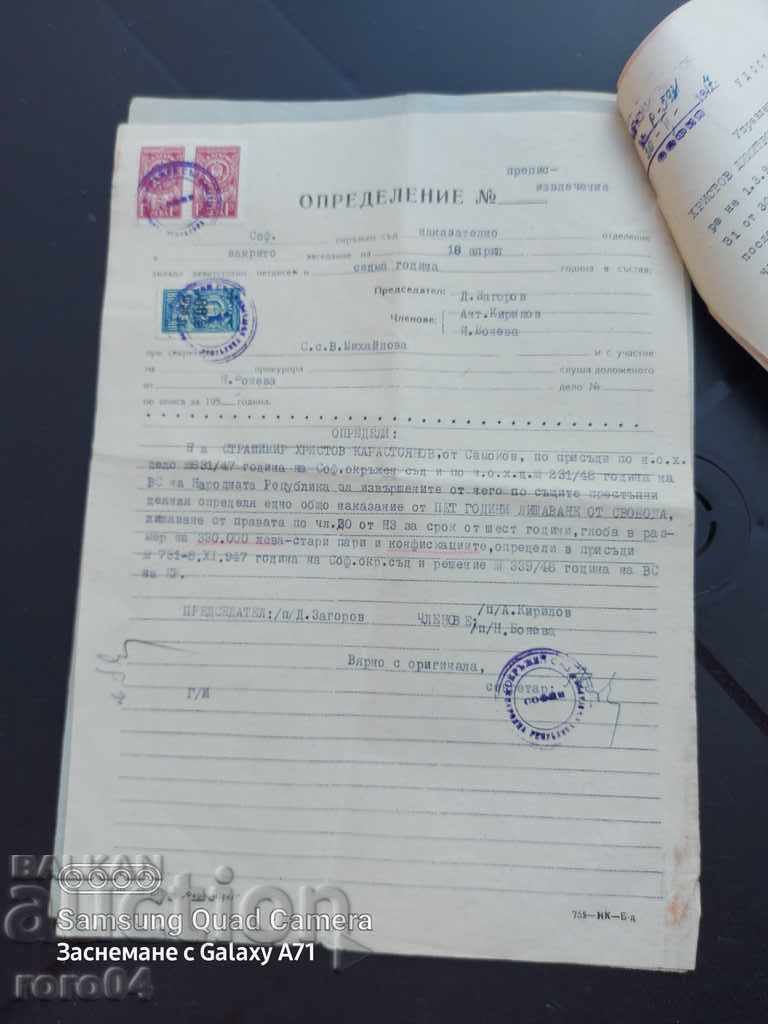 препис-
извлечение
ОПРЕДЕЛЕНИЕ №
Соф. окръжен съд наказателно отделение
в закрито заседание на 18 април
хиляда деветстотин петдесет и седма година година в състав:
Председател: Д.Загоров
Членове: Ант.Кирилов
Н.Бонева
С.с.В.Михайлова
при секретаря и с участие
на прокурора слуша доложеното
от Н.Бонева дело №
по описа за 195 година.
ОПРЕДЕЛИ:
На СТРАШИМИР ХРИСТОВ КАРАСТОЯНОВ, от Самоков, по присъди по н.о.х.
дело №831/47 година на Соф.окръжен съд и по н.о.х.д.№ 231/48 година на
ВС на Народната Република за извършените от него по същите престъпни
деяния определя едно общо наказание от ПЕТ ГОДИНИ ЛИШАВАНЕ ОТ СВОБОДА,
лишаване от правата по чл.30 от НЗ за срок от шест години, глоба в раз-
мер на 330.000 лева-стари пари и конфискациите, определи в присъди
№ 781-8.XI.947 година на Соф.окр.съд и решение № 339/48 година на ВС
на НР.
ПРЕДСЕДАТЕЛ:/п/Д.Загоров ЧЛЕНОВЕ: /п/А.Кирилов
/п/Н.Бонева
Вярно с оригинала,
секретар:
Г/И
758—НК—Б-д
ХРИСТОВ
ре на 1.3.9
31 от 30
после
BALKAN
auction
Samsung Quad Camera
Заснемане с Galaxy A71
roro04